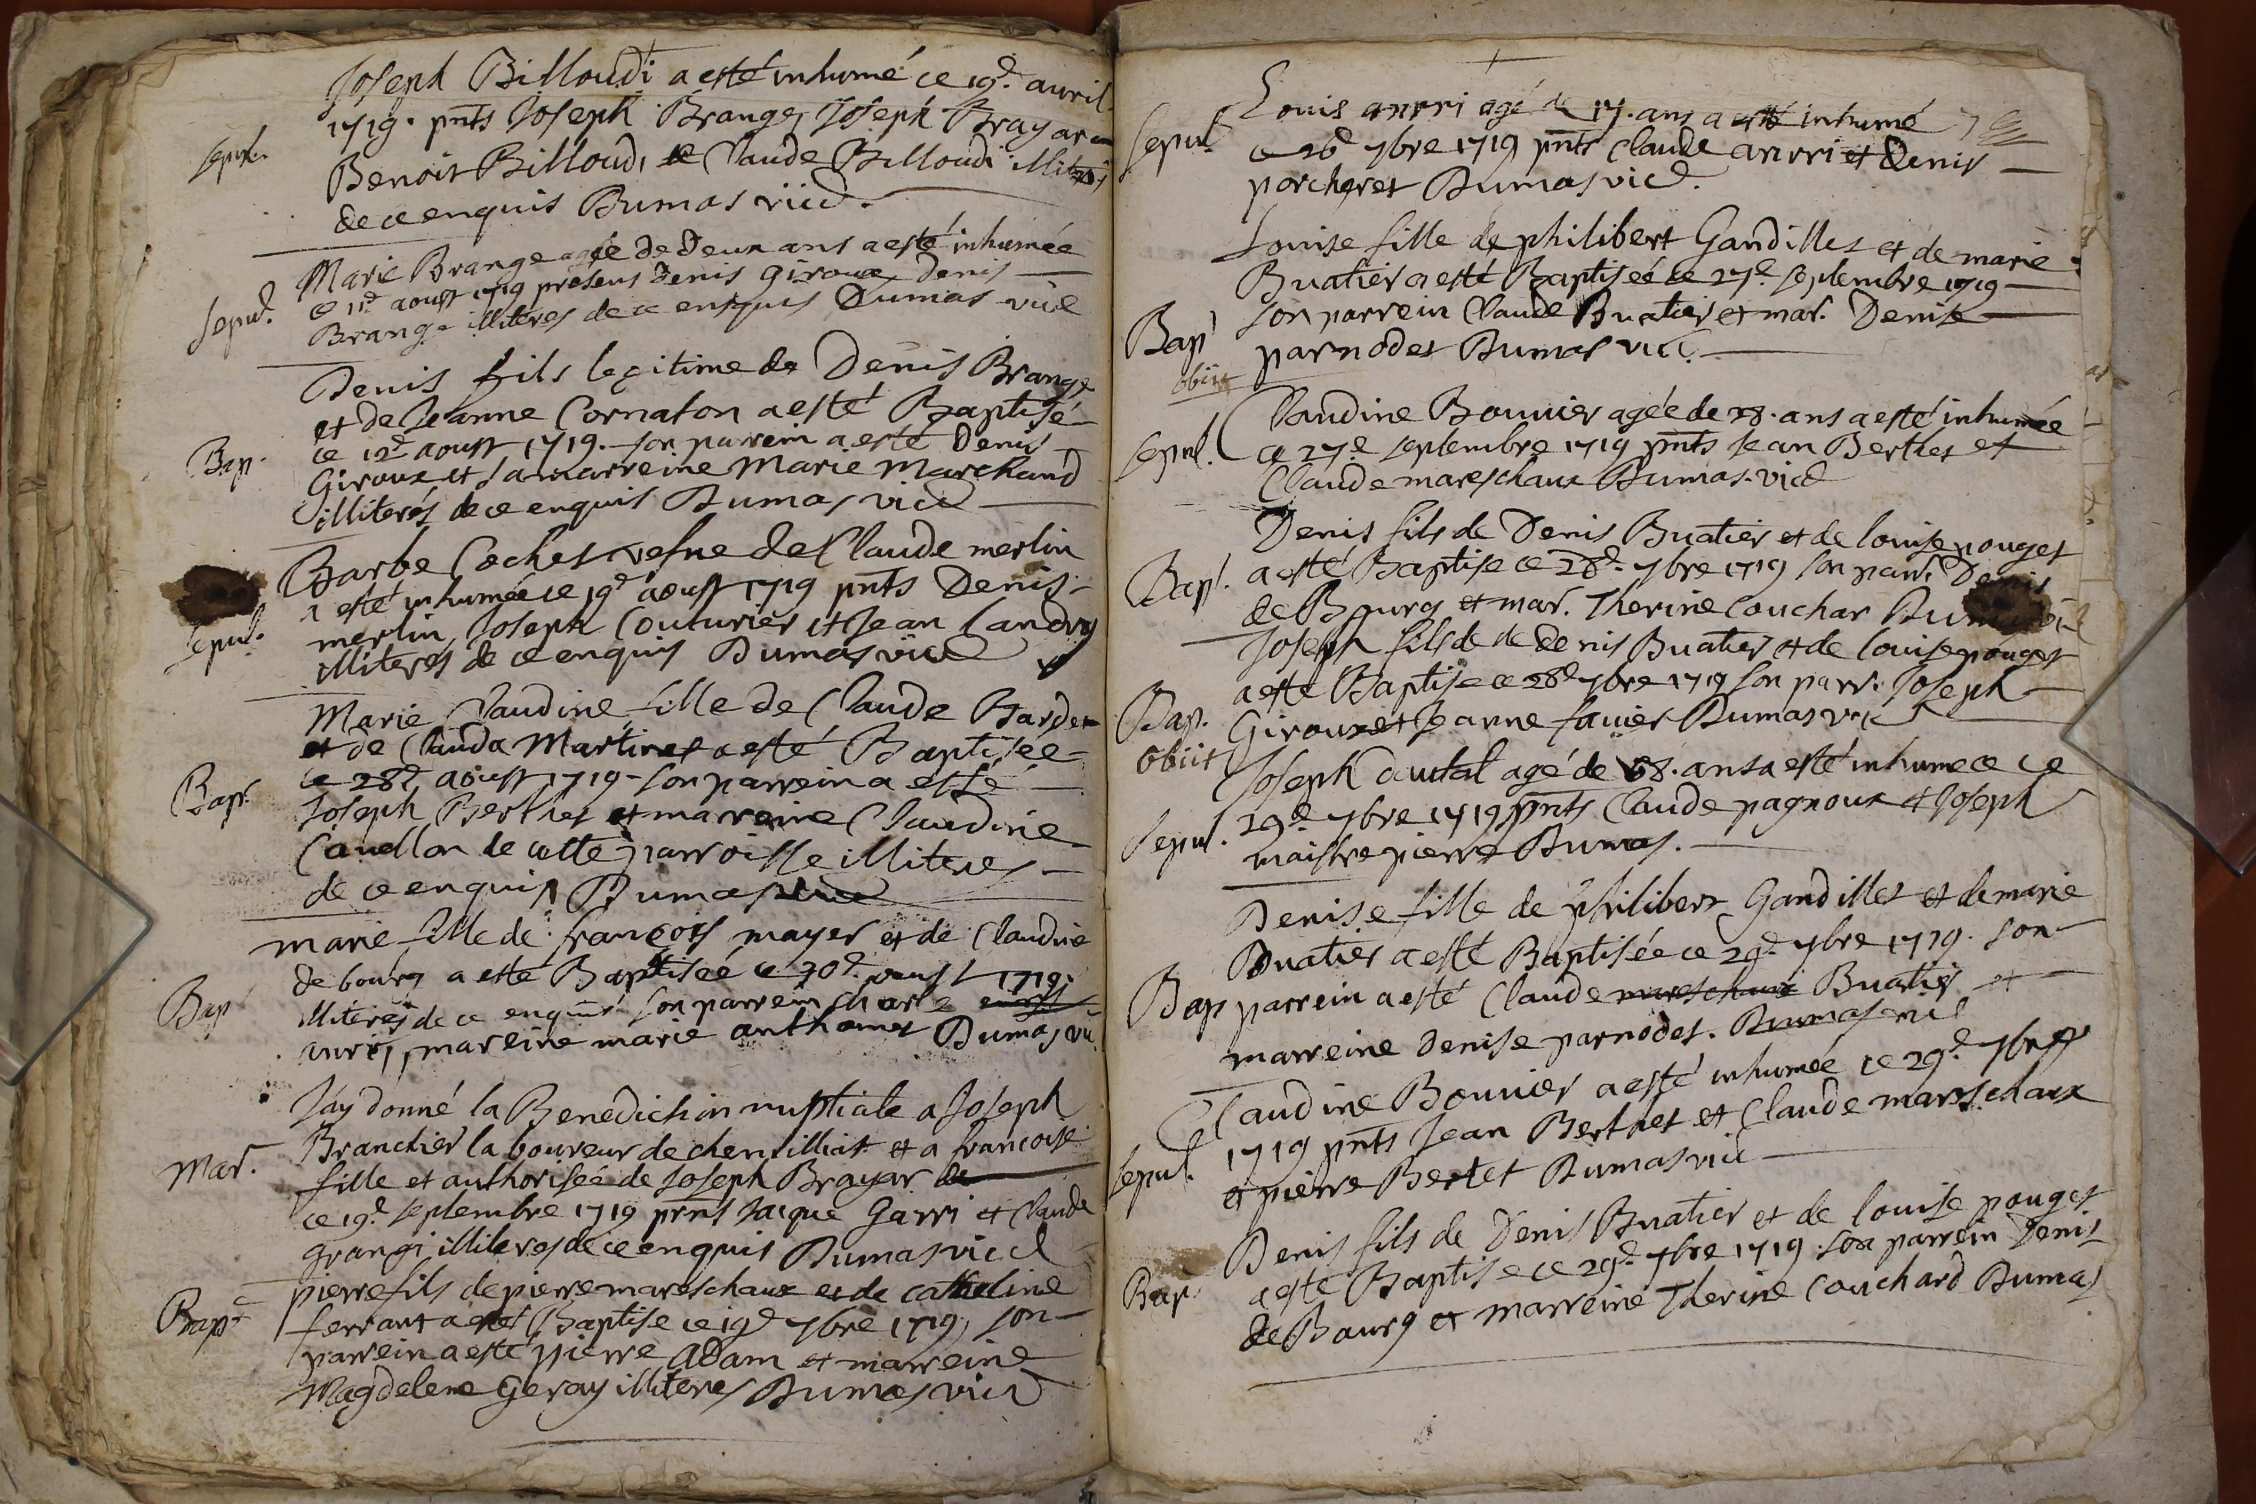 Joseph Billoudi a esté inhumé ce 19e. avril
1719. pnts Joseph Brange, Joseph Brayar
sepul. Benoit Billoudi et Claude Billoudi illiterés
de ce enquis Dumas vicd.
Marie Brange agée de Deux ans a esté inhumée
sepul. ce 11e aoust 1719 presens Denis Giroux, Denis
Brange illiteres de ce enquis Dumas vice
Denis fils legitime de Denis Brange
et de Jeanne Cornaton a esté Baptisé
Bap. ce 12e aoust 1719. son parrein a esté Denis
Giroux et sa marreine Marie Marchand
illiterés de ce enquis Dumas vice
Barbe Cochet vefue de Claude merlin
a esté inhumée ce 19e aoust 1719 pnts Denis
sepul. merlin, Joseph Couturier et Jean Landry
illiteres de ce enquis Dumas vice
Marie Claudine fille de Claude Bardet
et de Clauda Martinet a esté Baptisée
Bapt. ce 28e aoust 1719 - son parrein a esté
Joseph Berthet et marreine Claudine
Cauellon de cette parroisse illiteres
de ce enquis Dumas vice
marie fille de françois mayer et de Claudine
de bourg a esté Baptiseé ce 30e. aoust 1719.
Bap illiterés de ce enquis son parrein Charle
anrri, mareine marie anthomet Dumas vic
J'ay donné la Benediction nuptiale a Joseph
mar. Branchier laboureur de chenilliat et a francoise
fille et authorisée de Joseph Brayar de
ce 19e septembre 1719 prnts Jaique Garri et Claude
grangi illiteres de ce enquis Dumas vice
pierre fils de pierre mareschaux et de catheline
Bapt ferrant a esté Baptise ce 19e 7bre 1719, son
parrein a esté pierre Adam et marreine
Magdelene Geray illiteres Dumas vice
Louis anrri agé de 17. ans a esté inhumé
sepul. ce 26e 7bre 1719 pnts Claude anrri et Denis
porcheret Dumas vice.
Louise fille de philibert Gandillet et de marie
Buatier a esté Baptiseé ce 27e. septembre 1719
Bap son parrein Claude Buatier et mar. Denise
obiit parnodet Dumas vic.
Claudine Bouuier agée de 28. ans a esté inhumée
sepul. ce 27e. septembre 1719 pnts Jean Berthet et
Claude mareschaux Dumas. vice
Denis fils de Denis Buatier et de louise pouget
Bap. a esté Baptise ce 28e. 7bre 1719 son parr. Denis
de Bourg et mar. Therine Couchar
Joseph fils de de Denis Buatier et de louise pouget
Bap. a esté Baptise ce 28e 7bre 1719 son parr. Joseph
obiit Giroux et Jeanne fauier Dumas vic
Joseph agé de 58. ans a esté inhume ce ce
sepul. 29e. 7bre 1719 pnts Claude pagnoux et Joseph
maistre pierre Dumas.
Denise fille de philibert Gandillet et de marie
Buatier a esté Baptisée ce 29e. 7bre 1719. son
Bap parrein a esté Claude mareschaux Buatier et
marreine Denise parnodet. Dumas vic
Claudine Bouuier a esté inhumée ce 29e. 7bre
sepul. 1719 pnts Jean Berthet et Claude mareschaux
et pierre Bertet Dumas vic
Denis fils de Denis Buatier et de louise pouget
Bap. a esté Baptise ce 29e. 7bre 1719. son parrein Denis
de Bourg et marreine Therine Couchard Dumas